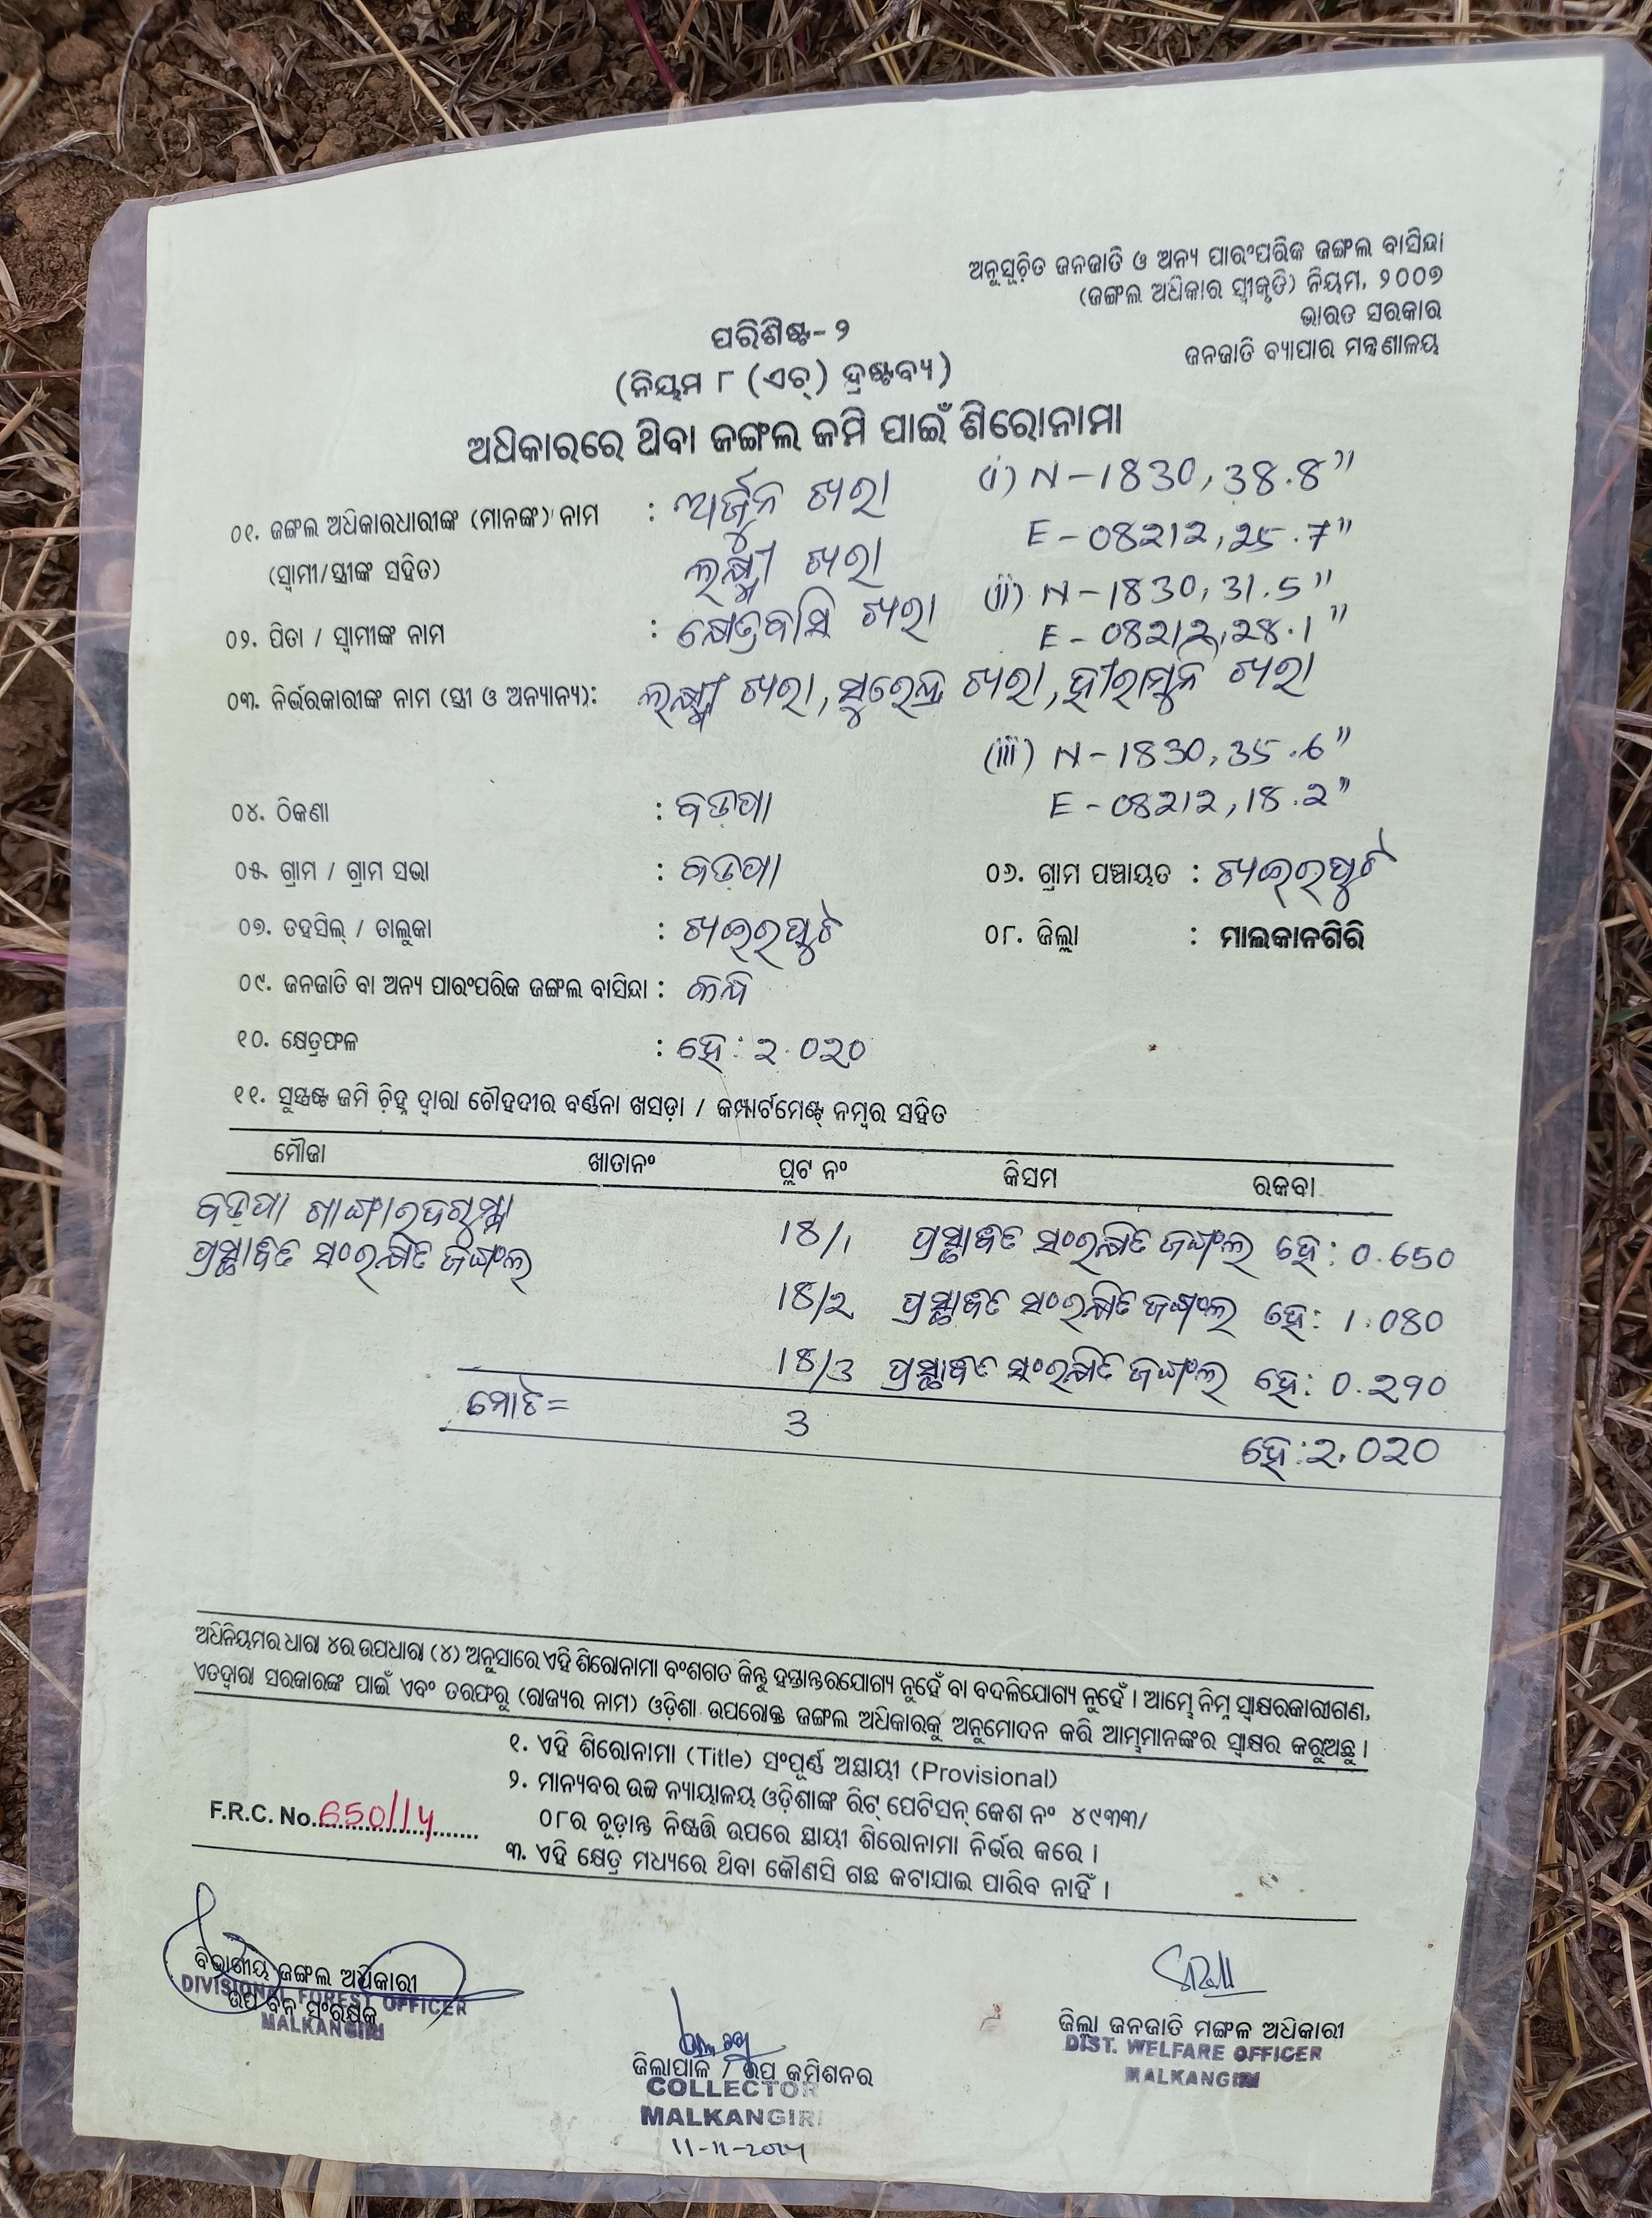 ଅନୁସୂଚିତ ଜନଜାତି ଓ ଅନ୍ୟ ପାରଂପରିକ ଜଙ୍ଗଲ ବାସିନ୍ଦା
(ଜଙ୍ଗଲ ଅଧିକାର ସ୍ୱୀକୃତି) ନିୟମ, ୨୦୦୭
ଭାରତ ସରକାର
ଜନଜାତି ବ୍ୟାପାର ମନ୍ତ୍ରଣାଳୟ
ପରିଶିଷ୍ଟ- ୨
(ନିୟମ ୮ (ଏଚ୍) ଦ୍ରଷ୍ଟବ୍ୟ)
ଅଧିକାରରେ ଥିବା ଜଙ୍ଗଲ ଜମି ପାଇଁ ଶିରୋନାମା
୦୧. ଜଙ୍ଗଲ ଅଧିକାରଧାରୀଙ୍କ (ମାନଙ୍କ) ନାମ : ଅର୍ଜୁନ ଖରା (i) N-1830, 38.8"
E-08212, 25.7"
(ସ୍ୱାମୀ/ସ୍ତ୍ରୀଙ୍କ ସହିତ) ଲକ୍ଷ୍ମୀ ଖରା (ii) N-1830, 31.5"
୦୨. ପିତା / ସ୍ୱାମୀଙ୍କ ନାମ : କ୍ଷେତ୍ରବାସି ଖରା E-08212, 28.1"
୦୩. ନିର୍ଭରକାରୀଙ୍କ ନାମ (ସ୍ତ୍ରୀ ଓ ଅନ୍ୟାନ୍ୟ): ଲକ୍ଷ୍ମୀ ଖରା, ସୁରେନ୍ଦ୍ର ଖରା, ହୀରାମୁନି ଖରା
(iii) N-1830, 35.6"
୦୪. ଠିକଣା : ବଡ଼ପା E-08212, 18.2"
୦୫. ଗ୍ରାମ / ଗ୍ରାମ ସଭା : ବଡ଼ପା ୦୬. ଗ୍ରାମ ପଞ୍ଚାୟତ : ଖଇରପୁଟ
୦୭. ତହସିଲ୍ / ତାଲୁକା : ଖଇରପୁଟ ୦୮. ଜିଲ୍ଲା : ମାଲକାନଗିରି
୦୯. ଜନଜାତି ବା ଅନ୍ୟ ପାରଂପରିକ ଜଙ୍ଗଲ ବାସିନ୍ଦା :
୧୦. କ୍ଷେତ୍ରଫଳ : ହେ: ୨.୦୨୦
୧୧. ସୁସ୍ପଷ୍ଟ ଜମି ଚିହ୍ନ ଦ୍ୱାରା ଚୌହଦୀର ବର୍ଣ୍ଣନା ଖସଡ଼ା / କମ୍ପାର୍ଟମେଣ୍ଟ୍ ନମ୍ବର ସହିତ
ମୌଜା ଖାତାନଂ ପ୍ଲଟ ନଂ କିସମ ରକବା
ବଡ଼ପା 18/1 ପ୍ରସ୍ଥାବିତ ସଂରକ୍ଷିତ ଜଙ୍ଗଲ ହେ: 0.650
ପ୍ରସ୍ଥାବିତ ସଂରକ୍ଷିତ ଜଙ୍ଗଲ
18/୨ ପ୍ରସ୍ଥାବିତ ସଂରକ୍ଷିତ ଜଙ୍ଗଲ ହେ: 1.080
18/3 ପ୍ରସ୍ଥାବିତ ସଂରକ୍ଷିତ ଜଙ୍ଗଲ ହେ: 0.୨90
ମୋଟ= 3 ହେ: ୨.0୨0
ଅଧିନିୟମର ଧାରା ୪ର ଉପଧାରା (୪) ଅନୁସାରେ ଏହି ଶିରୋନାମା ବଂଶଗତ କିନ୍ତୁ ହସ୍ତାନ୍ତରଯୋଗ୍ୟ ନୁହେଁ ବା ବଦଳିଯୋଗ୍ୟ ନୁହେଁ । ଆମ୍ଭେ ନିମ୍ନ ସ୍ୱାକ୍ଷରକାରୀଗଣ,
ଏତଦ୍ୱାରା ସରକାରଙ୍କ ପାଇଁ ଏବଂ ତରଫରୁ (ରାଜ୍ୟର ନାମ) ଓଡ଼ିଶା ଉପରୋକ୍ତ ଜଙ୍ଗଲ ଅଧିକାରକୁ ଅନୁମୋଦନ କରି ଆମ୍ଭମାନଙ୍କର ସ୍ୱାକ୍ଷର କରୁଅଛୁ ।
୧. ଏହି ଶିରୋନାମା (Title) ସଂପୂର୍ଣ୍ଣ ଅସ୍ଥାୟୀ (Provisional)
୨. ମାନ୍ୟବର ଉଚ୍ଚ ନ୍ୟାୟାଳୟ ଓଡ଼ିଶାଙ୍କ ରିଟ୍ ପେଟିସନ୍ କେଶ ନଂ ୪୯୩୩/
୦୮ର ଚୂଡ଼ାନ୍ତ ନିଷ୍ପତ୍ତି ଉପରେ ସ୍ଥାୟୀ ଶିରୋନାମା ନିର୍ଭର କରେ ।
F.R.C. No. 650/14
୩. ଏହି କ୍ଷେତ୍ର ମଧ୍ୟରେ ଥିବା କୌଣସି ଗଛ କଟାଯାଇ ପାରିବ ନାହିଁ ।
ବିଭାଗୀୟ ଜଙ୍ଗଲ ଅଧିକାରୀ
DIVISIONAL FOREST OFFICER
ଉପ ବନ ସଂରକ୍ଷକ
MALKANGIRI
ଜିଲ୍ଲାପାଳ / ଉପ କମିଶନର
COLLECTOR
MALKANGIRI
11-11-2014
ଜିଲ୍ଲା ଜନଜାତି ମଙ୍ଗଳ ଅଧିକାରୀ
DIST. WELFARE OFFICER
MALKANGIRI